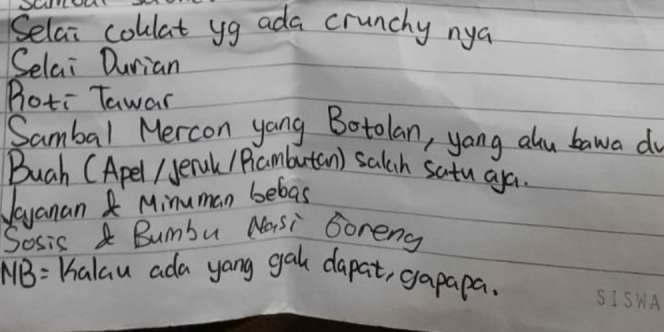 Selai coklat yg ada crunchy nya
Selai Durian
Roti Tawar
Sambal Mercon yang Botolan, yang aku bawa du
Buah (Apel/Jeruk/Rambutan) salah satu aja.
Jajanan & Minuman bebas
Sosis & Bumbu Nasi Goreng
NB= Kalau ada yang gak dapat, gapapa.
SISWA